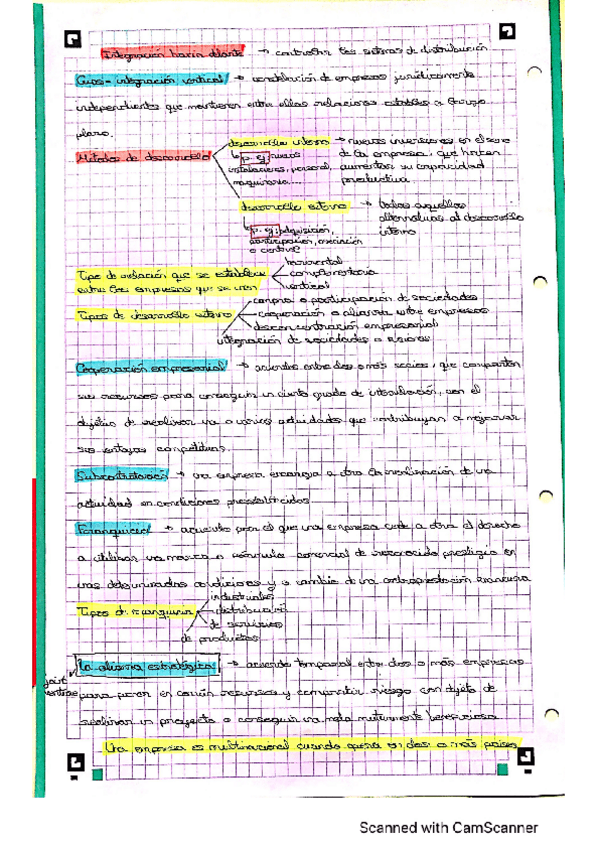 Integración hacia delante → controlar los sistemas de distribución
Cuasi-integración vertical → constelación de empresas jurídicamente
independientes que mantienen entre ellas relaciones estables a largo
plazo.
Métodos de desarrollo
desarrollo interno → nuevas inversiones en el seno
de la empresa, que hacen
aumentar su capacidad
productiva
↳ p. ej: nuevas
instalaciones, personal,
maquinaria....
desarrollo externo → todas aquellas
alternativas al desarrollo
interno
↳ p. ej: adquisición,
participación, asociación
o control
Tipo de relación que se establece
entre las empresas que se unen
horizontal
complementaria
vertical
Tipos de desarrollo externo
compra o participación de sociedades
cooperación o alianza entre empresas
descentralización empresarial
integración de sociedades o fusiones
Cooperación empresarial → acuerdo entre dos o más socios, que comparten
sus recursos para conseguir un cierto grado de interrelación, con el
objetivo de realizar una o varias actividades que contribuyan a mejorar
sus ventajas competitivas.
Subcontratación → una empresa encarga a otra la realización de una
actividad en condiciones preestablecidas
Franquicia → acuerdo por el que una empresa cede a otra el derecho
a utilizar una marca o fórmula comercial de reconocido prestigio en
unas determinadas condiciones y a cambio de una contraprestación financiera
Tipos de franquicia
industriales
distribución
de servicios
de productos
La alianza estratégica → acuerdo temporal entre dos o más empresas
joint
venture
para poner en común recursos y compartir riesgo con objeto de
realizar un proyecto o conseguir una meta mutuamente beneficiosa
Una empresa es multinacional cuando opera en dos o más países
Scanned with CamScanner